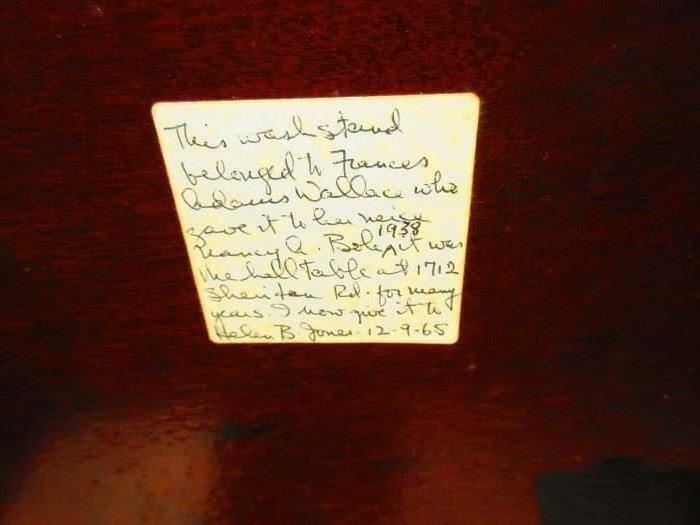 This wash stand
belonged to Frances
Adams Wallace who
gave it to her neice
1938
Nancy A. ^ it was
the hall table at 1712
Sheridan Rd. for many
years. I now give it to
Helen B. Jones - 12-9-65